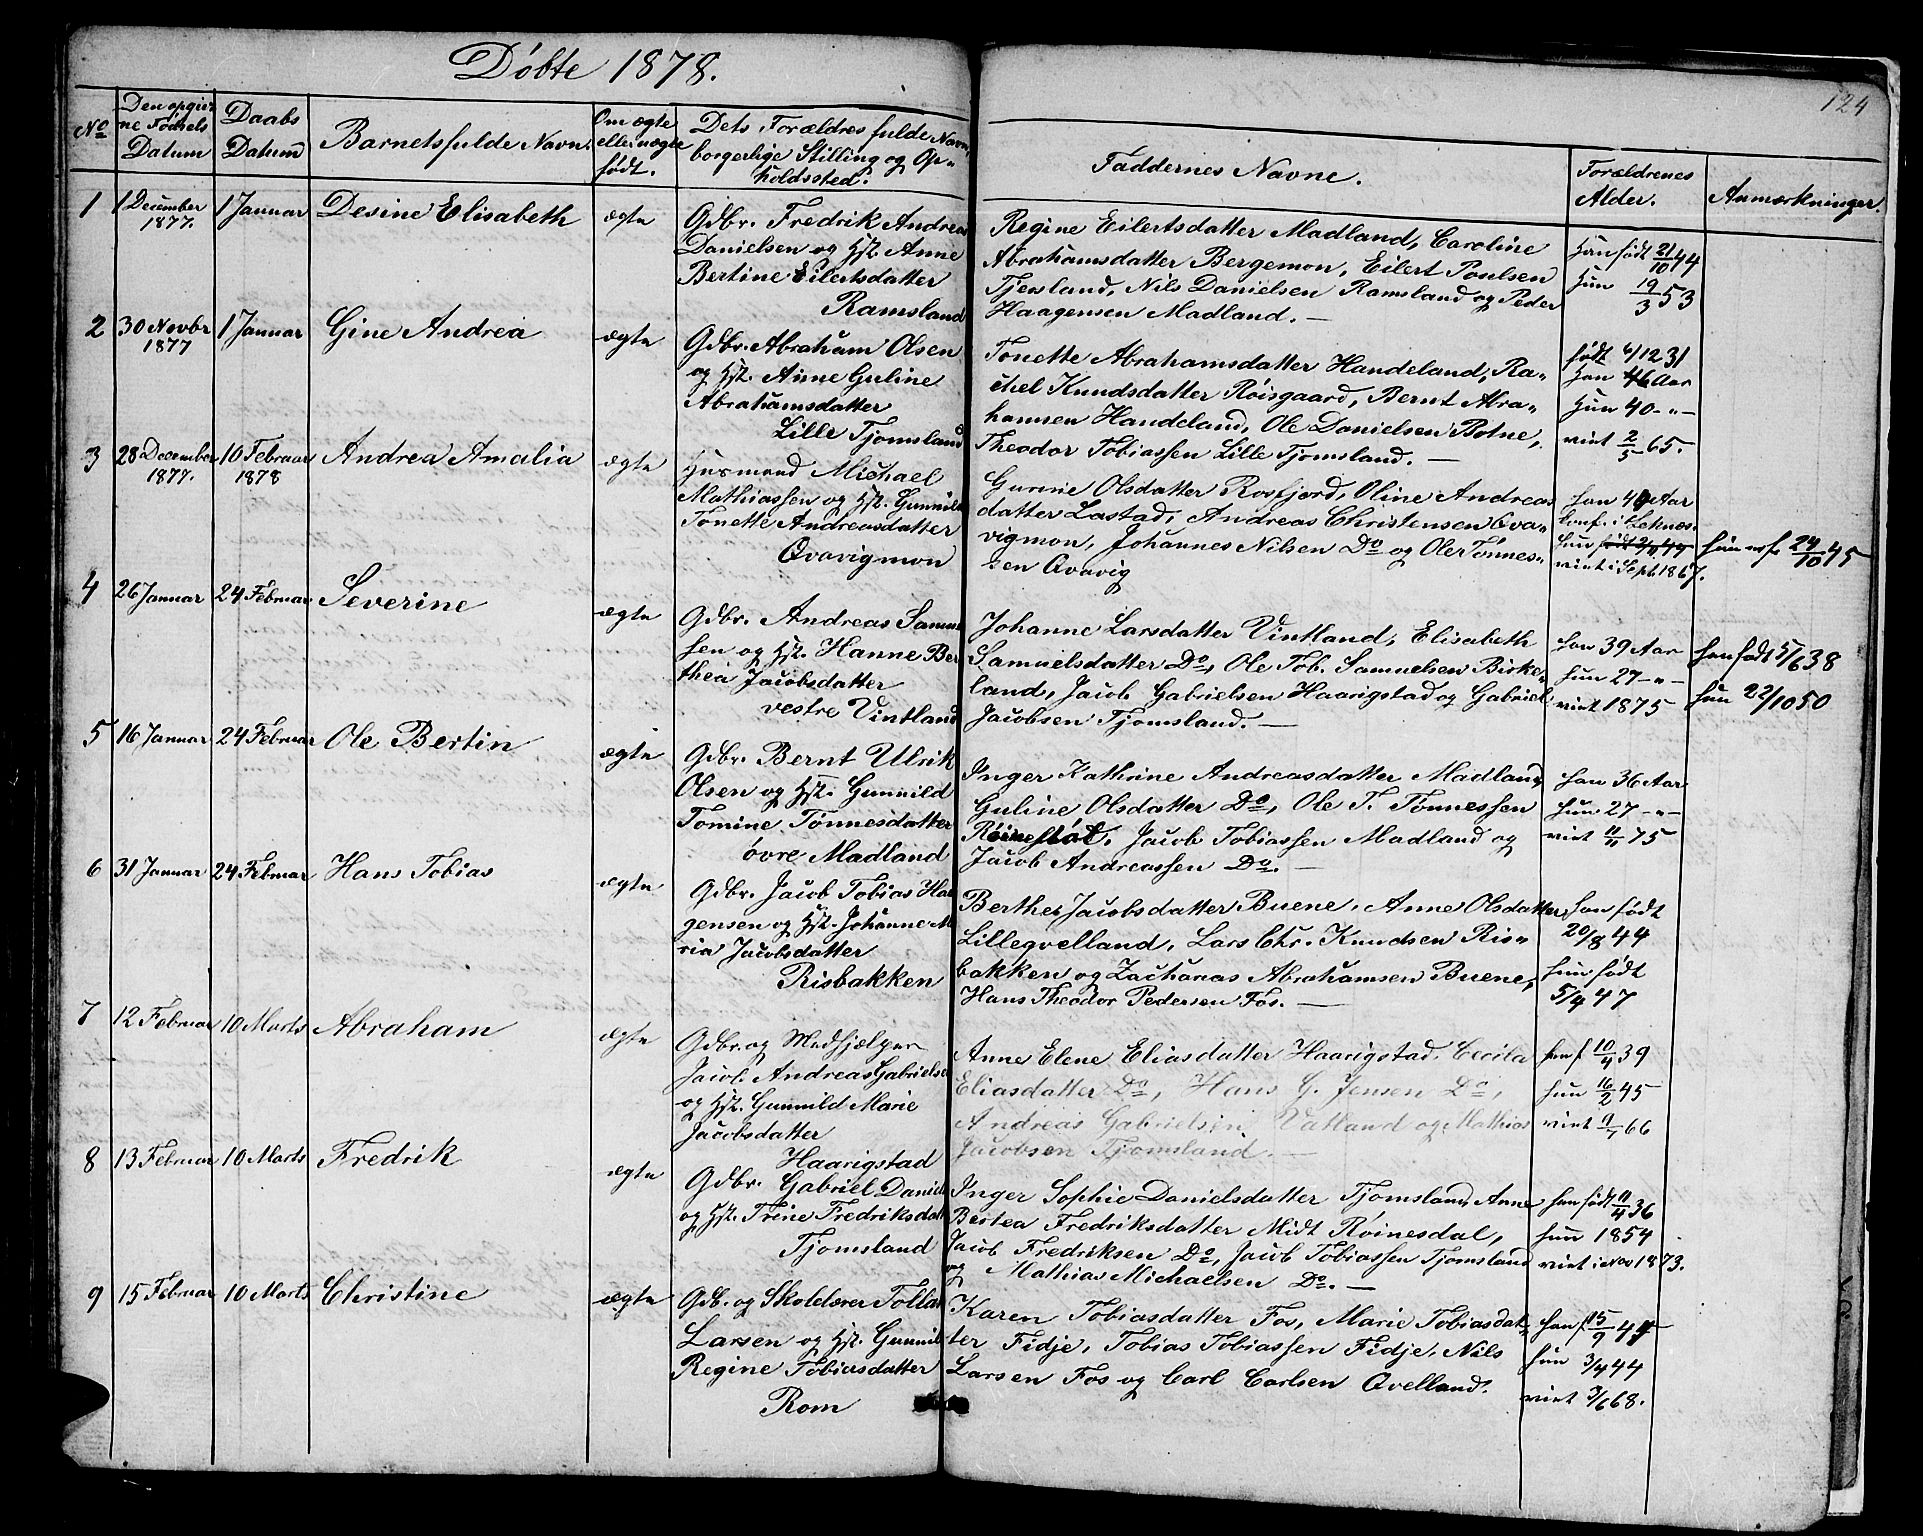 Döbte 1878.
124
No
Den opgiv-
ne Födsels
Datum
Daabs
Datum
Barnets fulde Navn.
Om ægte
eller uægte
födt.
Dets Forældres fulde Navn,
borgerlige Stilling og Op-
holdssted.
Faddernes Navne.
Forældrenes
Alder.
Anmærkninger.
1
1 December
1877.
1 Januar
Desine Elisabeth
ægte
Gdbr. Fredrik Andreas
Danielsen og Hst. Anne
Bertine Eilertsdatter
Ramsland
Regine Eilertsdatter Madland, Caroline
Abrahamsdatter Bergemon, Eilert Poulsen
Tjersland, Nils Danielsen Ramsland og Peder
Haagensen Madland. —
Han födt 21/10 44
Hun 19/3 53
2
30 Novbr
1877
1 Januar
Gine Andrea
ægte
Gdbr. Abraham Olsen
og Hst. Anne Guline
Abrahamsdatter
Lille Tjomsland
Tonette Abrahamsdatter Handeland, Ra-
chel Knudsdatter Röisgaard, Bernt Abra-
hamsen Handeland, Ole Danielsen Botne,
Theodor Tobiassen Lille Tjomsland. —
födt 6/12 31
Han 46 Aar
Hun 40 - " -
viet 2/5 65.
3
28 December
1877.
10 Februar
1878
Andrea Amalia
ægte
Husmand Michael
Mathiassen og Hst. Gunnild
Tonette Andreasdatter
Qvavigmon
Gurine Olsdatter Rosfjord, Oline Andreas
datter Lastad, Andreas Christensen Qva-
vigmon, Johannes Nilsen Do og Ole Tönnes-
sen Qvavig
han 40 Aar
konf. i Leknes.
hun födt 2/11 49
viet i Sept 1867.
hun er f. 24/10 45
4
26 Januar
24 Februar
Severine
ægte
Gdbr. Andreas Samu
sen og Hst. Hanne Ber
thea Jacobsdatter
vestre Vintland
Johanne Larsdatter Vintland, Elisabeth
Samuelsdatter Do, Ole Tob. Samuelsen Birke-
land, Jacob Gabrielsen Haarigstad og Gabriel
Jacobsen Tjomsland. —
han 39 Aar
hun 27 - " -
viet 1875
han födt 5/6 38
hun 22/10 50
5
16 Januar
24 Februar
Ole Bertin
ægte
Gdbr. Bernt Ulrik
Olsen og Hst. Gunnild
Tomine Tönnesdatter
övre Madland
Inger Kathrine Andreasdatter Madland,
Guline Olsdatter Do, Ole T. Tönnessen
Röinesdal, Jacob Tobiassen Madland og
Jacob Andreassen Do. —
han 36 Aar
hun 27 - " -
viet 11/11 75
6
31 Januar
24 Februar
Hans Tobias
ægte
Gdbr. Jacob Tobias Haa
gensen og Hst. Johanne M
ria Jacobsdatter
Risbakken
Berthe Jacobsdatter Buene, Anne Olsdatter
Lilleqvelland, Lars Chr. Knudsen Ris-
bakken og Zacharias Abrahamsen Buene,
Hans Theodor Pedersen Fos. —
han födt
20/8 44
hun födt
5/4 47
7
12 Februar
10 Marts
Abraham
ægte
Gdbr. og Medhjælper
Jacob Andreas Gabrielse
og Hst. Gunnild Marie
Jacobsdatter
Haarigstad
Anne Elene Eliasdatter Haarigstad, Cecilia
Eliasdatter Do, Hans G. Jensen Do,
Andreas Gabrielsen Vatland og Mathias
Jacobsen Tjomsland. —
han f 10/4 39
hun 16/2 45
viet 11/1 66
8
13 Februar
10 Marts
Fredrik
ægte
Gdbr. Gabriel Daniel
og Hst. Trine Fredriksdatt
Tjomsland
Inger Sophie Danielsdatter Tjomsland, Anne
Bertea Fredriksdatter Midt Röinesdal,
Jacob Fredriksen Do, Jacob Tobiassen Tjomsland
og Mathias Michaelsen Do. —
han födt 11/4 36
hun 1854
viet i Nov 1873.
9
15 Februar
10 Marts
Christine
ægte
Gdb. og Skolelærer Tollak
Larsen og Hst. Gunnil
Regine Tobiasdatter
Rom
Karen Tobiasdatter Fos, Marie Tobiasdat-
ter Fidje, Tobias Tobiassen Fidje, Nils
Larsen Fos og Carl Carlsen Qvelland.
han f 15/9 44
hun 3/4 44
viet 3/6 68.